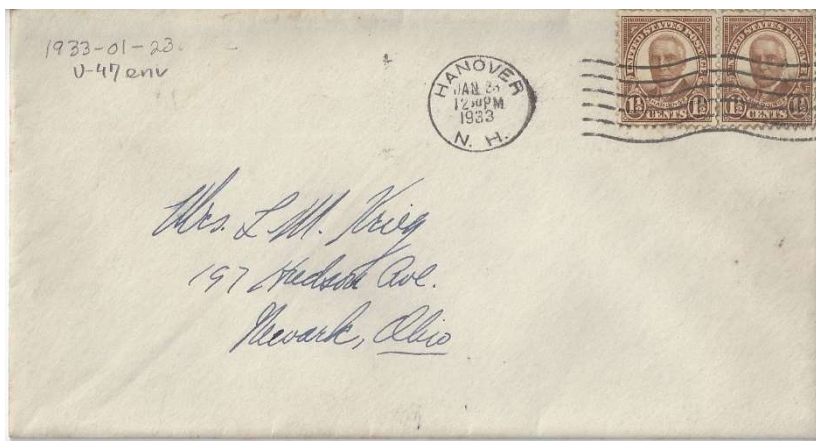 1933-01-23
V-47 env
HANOVER
JAN 23
12 PM
1933
N. H.
UNITED STATES POSTAGE
1½ 1½
CENTS
UNITED STATES POSTAGE
1½ 1½
CENTS
Mrs. L M. Krieg
197 Hudson Ave.
Newark, Ohio